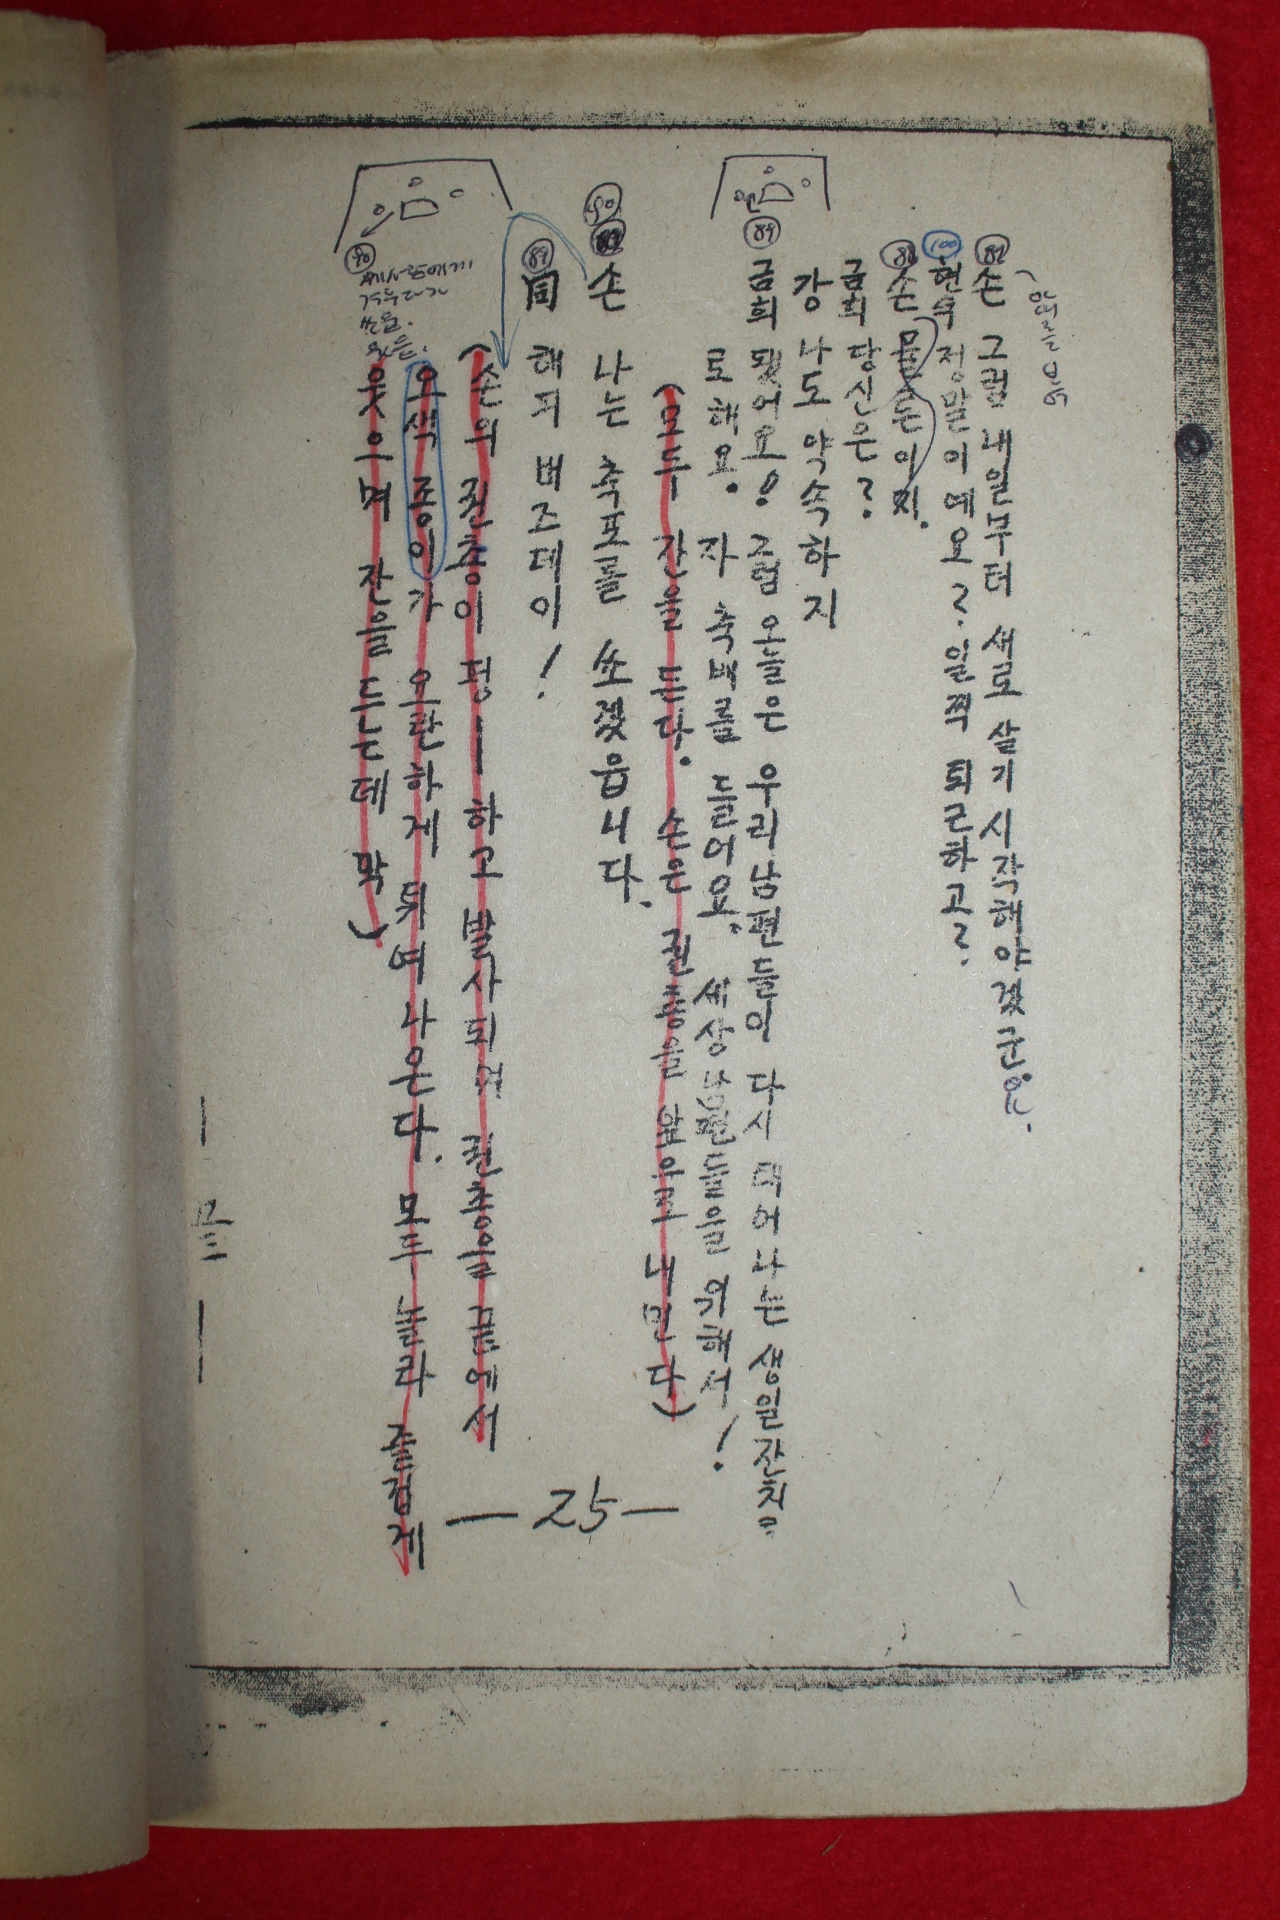 손 그럼 내일부터 새로 살기 시작해야겠군요.
100 현숙 정말이예요? 일찍 퇴근하고?
88 손 물론이지.
금희 당신은?
강 나도 약속하지
89 금희 됐어요! 그럼 오늘은 우리 남편들이 다시 태어나는 생일잔치
로 해요. 자 축배를 들어요. 세상 남편들을 위해서!
(모두 잔을 든다. 손은 권총을 앞으로 내민다)
손 나는 축포를 쏘겠읍니다.
89 同 해피 버즈데이!
(손의 권총이 펑— 하고 발사되며 권총을 끝에서
오색 종이가 요란하게 튀여 나온다. 모두 놀라 즐겁게
웃으며 잔을 드는데 막)
— 막 —
— 25 —